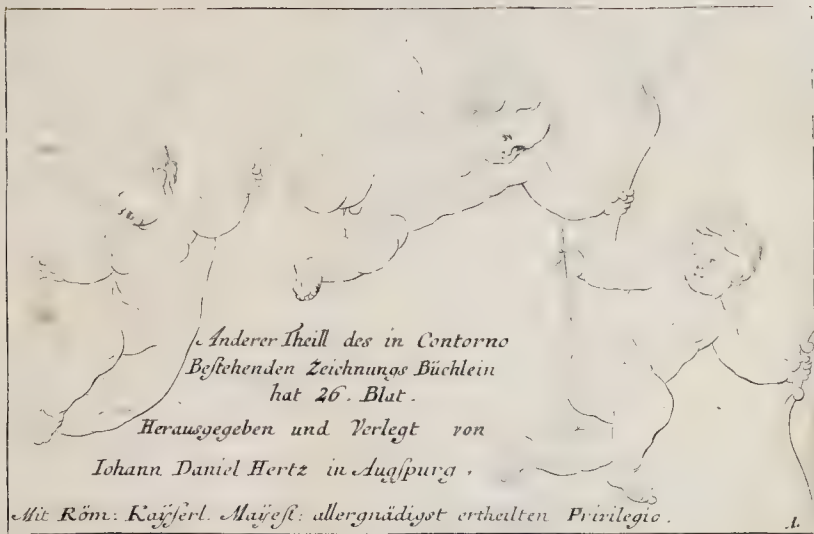 Anderer Theill des in Contorno
Beſtehenden Zeichnungs Büchlein
hat 26. Blat.
Herausgegeben und Verlegt von
Iohann Daniel Hertz in Augſpurg.
Mit Röm: Kaÿſerl. Maÿeſt: allergnädigst ertheilten Privilegio.
1.